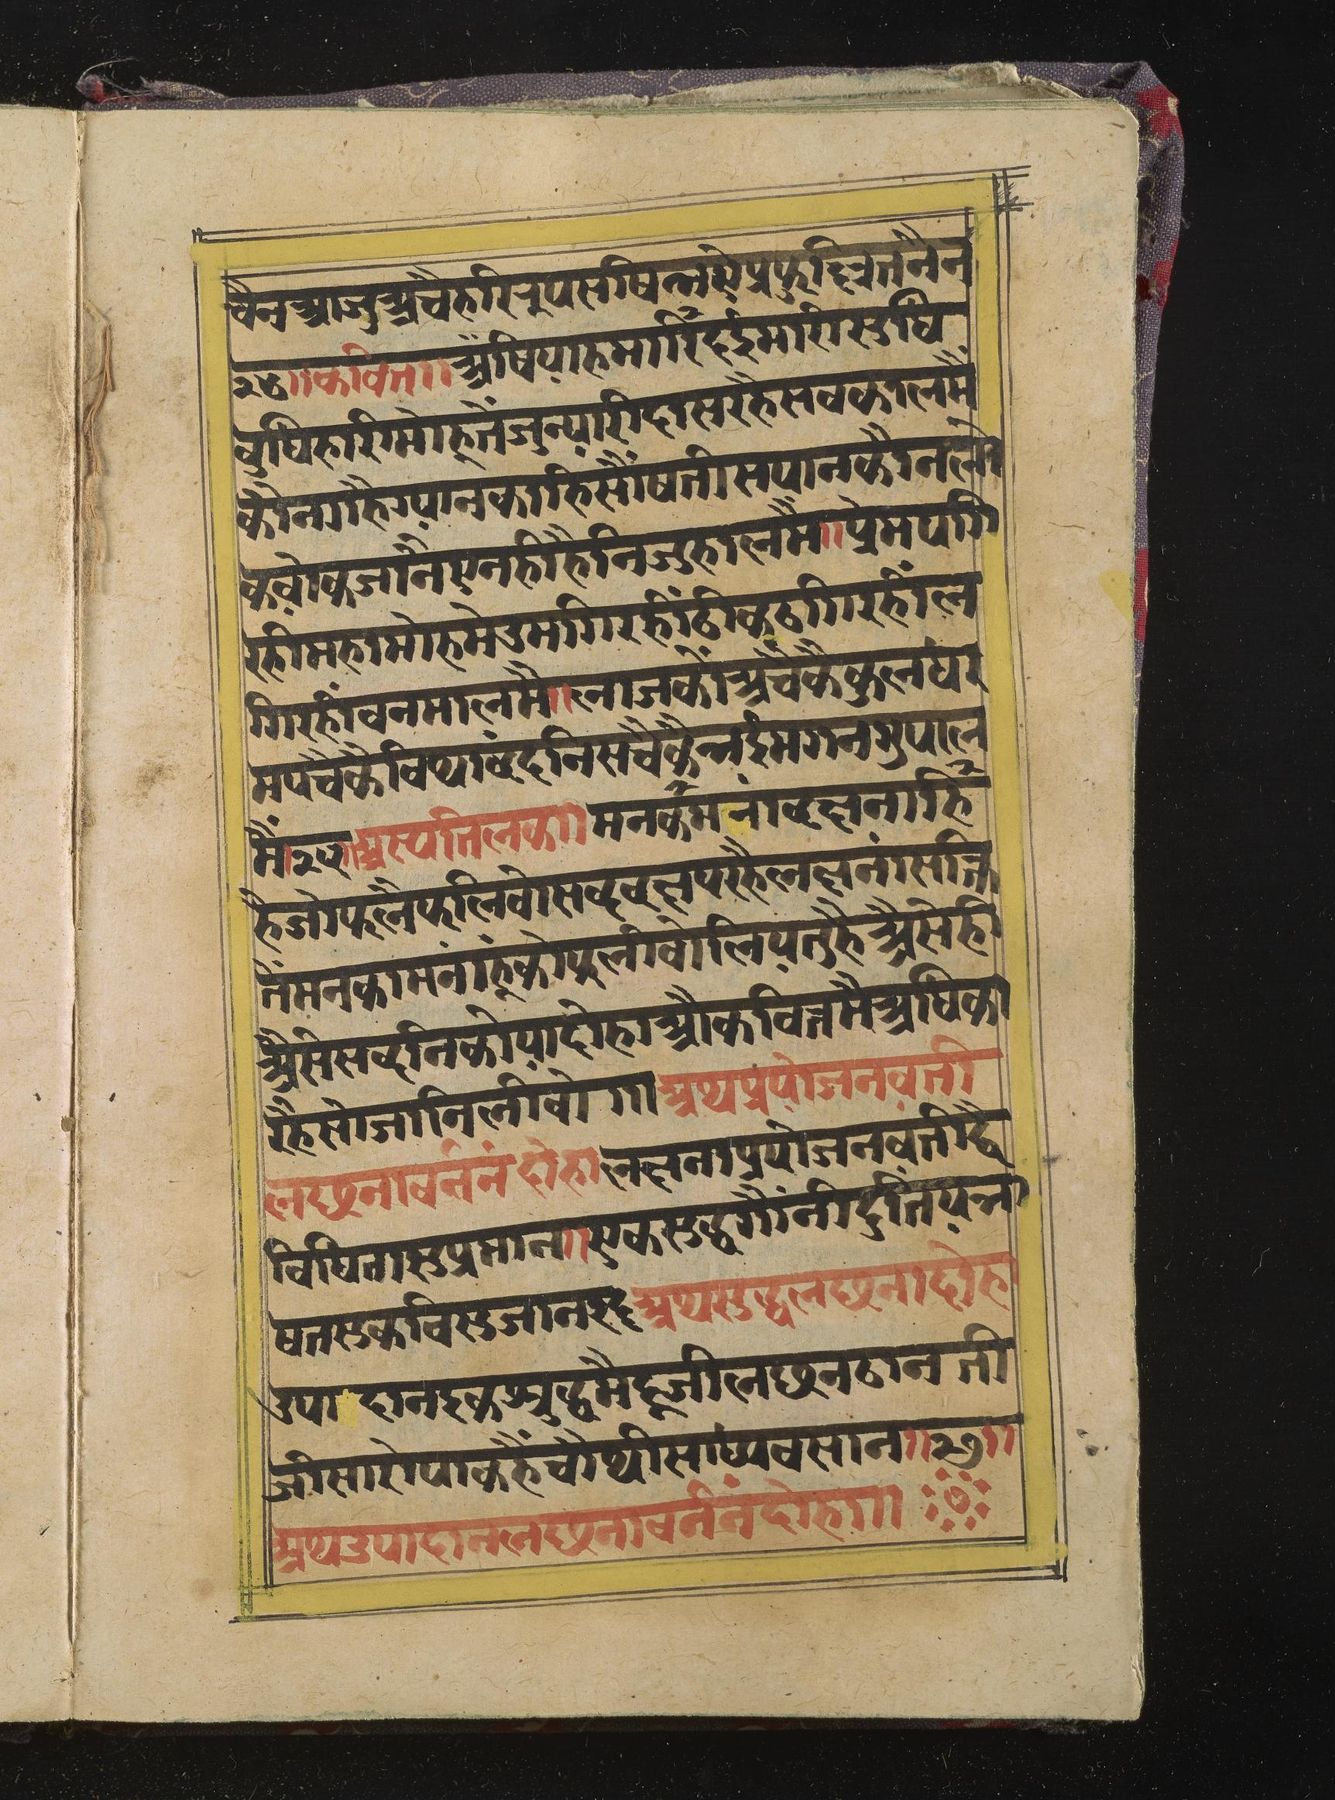 वैनआजुअचैहरिरुपसषिन्नऐप्रफुल्लितनैन
२४॥कवित्त॥अँषियाहमारिंदईमारीसुधि
वुधिहारिमोहूतैंजुन्यारीदासरहैसवकालमैं
कौनगहैग्यानकाहिसौंपतीसयानकौनलो
कवोकजानैएनहीहैनिजुहालमैं॥प्रेमपगि
रहीमहामोहमेउमगिरहींठीकठगिरहींल
गिरहींवनमालमै॥लाजकौंअचैकैकुलधर
मपचैकैविथावृंदनिसचैकैन्नईंमगनगुपाल
मैं।२५।अस्यतिलक॥मनकांमनांवृछनाहिं
हैजोफलैफलिवोसवृवृछपरहैलछनांसक्ति
तैंमनकामनांहूंकोफलीवोलियतुहैअैसेही
अैसेसव्दनिकोयादोहाऔकवित्तमैअधिका
रहैसोजानिलीवो॥अथप्रयोजनवती
लछनावर्ननंदोहालछनाप्रयोजनवतीद्वै
विधितासुप्रमान॥एकसुद्धगौंनीदुतियन्ना
षतसुकविसुजान२६अथसुद्धलछनादोहा
उपादानइकसुद्धमैदूजीलछनठानती
जीसारोपाकहैंचौथीसाध्यवसान॥२७॥
अथउपादानलछनावर्ननंदोहा॥